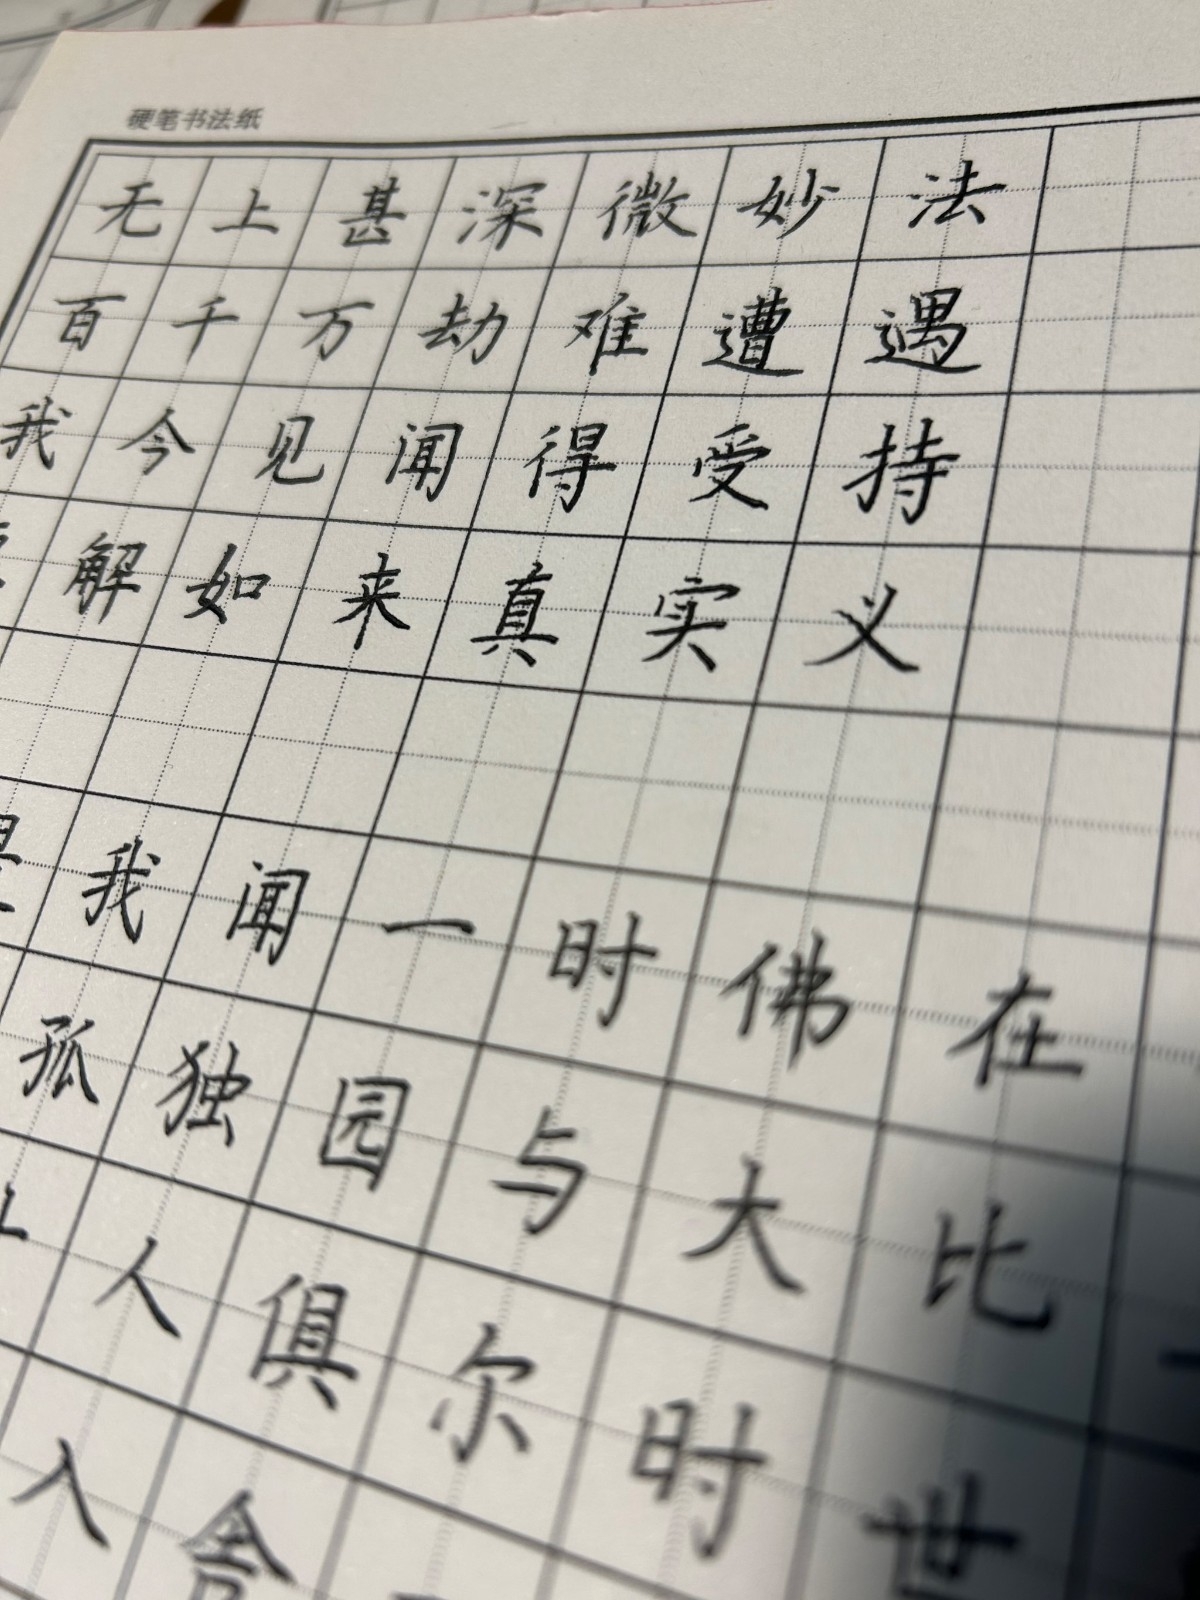 硬笔书法纸
无上甚深微妙法
百千万劫难遭遇
我今见闻得受持
解如来真实义
我闻一时佛在
孤独园与大比
人俱尔时世
入舍